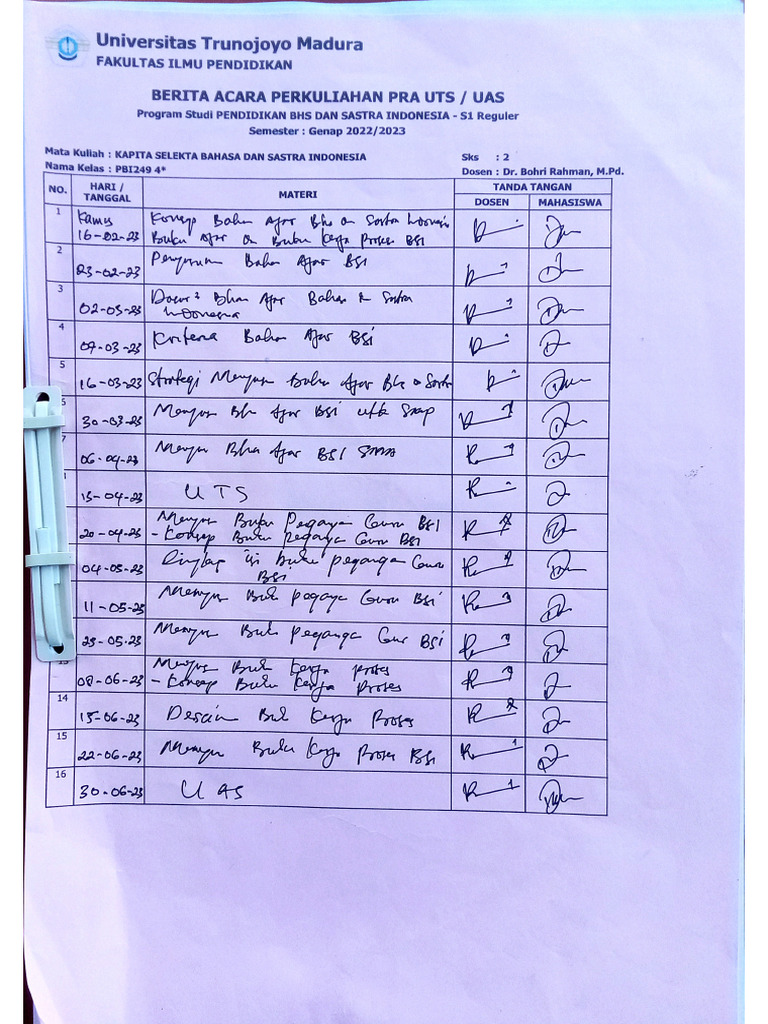 Universitas Trunojoyo Madura
FAKULTAS ILMU PENDIDIKAN
BERITA ACARA PERKULIAHAN PRA UTS / UAS
Program Studi PENDIDIKAN BHS DAN SASTRA INDONESIA - S1 Reguler
Semester : Genap 2022/2023
Mata Kuliah : KAPITA SELEKTA BAHASA DAN SASTRA INDONESIA Sks : 2
Nama Kelas : PBI249 4* Dosen : Dr. Bohri Rahman, M.Pd.
NO. HARI / TANGGAL MATERI TANDA TANGAN
DOSEN MAHASISWA
1 Kamis Konsep Bahan Ajar Bhs Sastra Indonesia
16-02-23 Buku Ajar Buku Kerja Proses BSI
2 23-02-23 Bahan Ajar BSI
3 02-03-23 Bhan Ajar Bahasa & Sastra
Indonesia
4 09-03-23 Kriteria Bahan Ajar BSI
5 16-03-23 Strategi Menyusun Bahan Ajar Bhs & Sastra
6 30-03-23 Menyusun Bhn Ajar BSI utk
7 06-04-23 Menyusun Bhn Ajar BSI SMA
13-04-23 UTS
20-04-23 Menyusun Buku Pegangan Guru BSI
- Konsep Buku Pegangan Guru BSI
04-05-23 isi Buku Pegangan Guru
BSI
11-05-23 Menyusun Buku Pegangan Guru BSI
25-05-23 Menyusun Buku Pegangan Guru BSI
13 08-06-23 Menyusun Buku Kerja Proses
- Konsep Buku Kerja Proses
14 15-06-23 Desain Buku Kerja Proses
15 22-06-23 Menyusun Buku Kerja Proses BSI
16 30-06-23 UAS